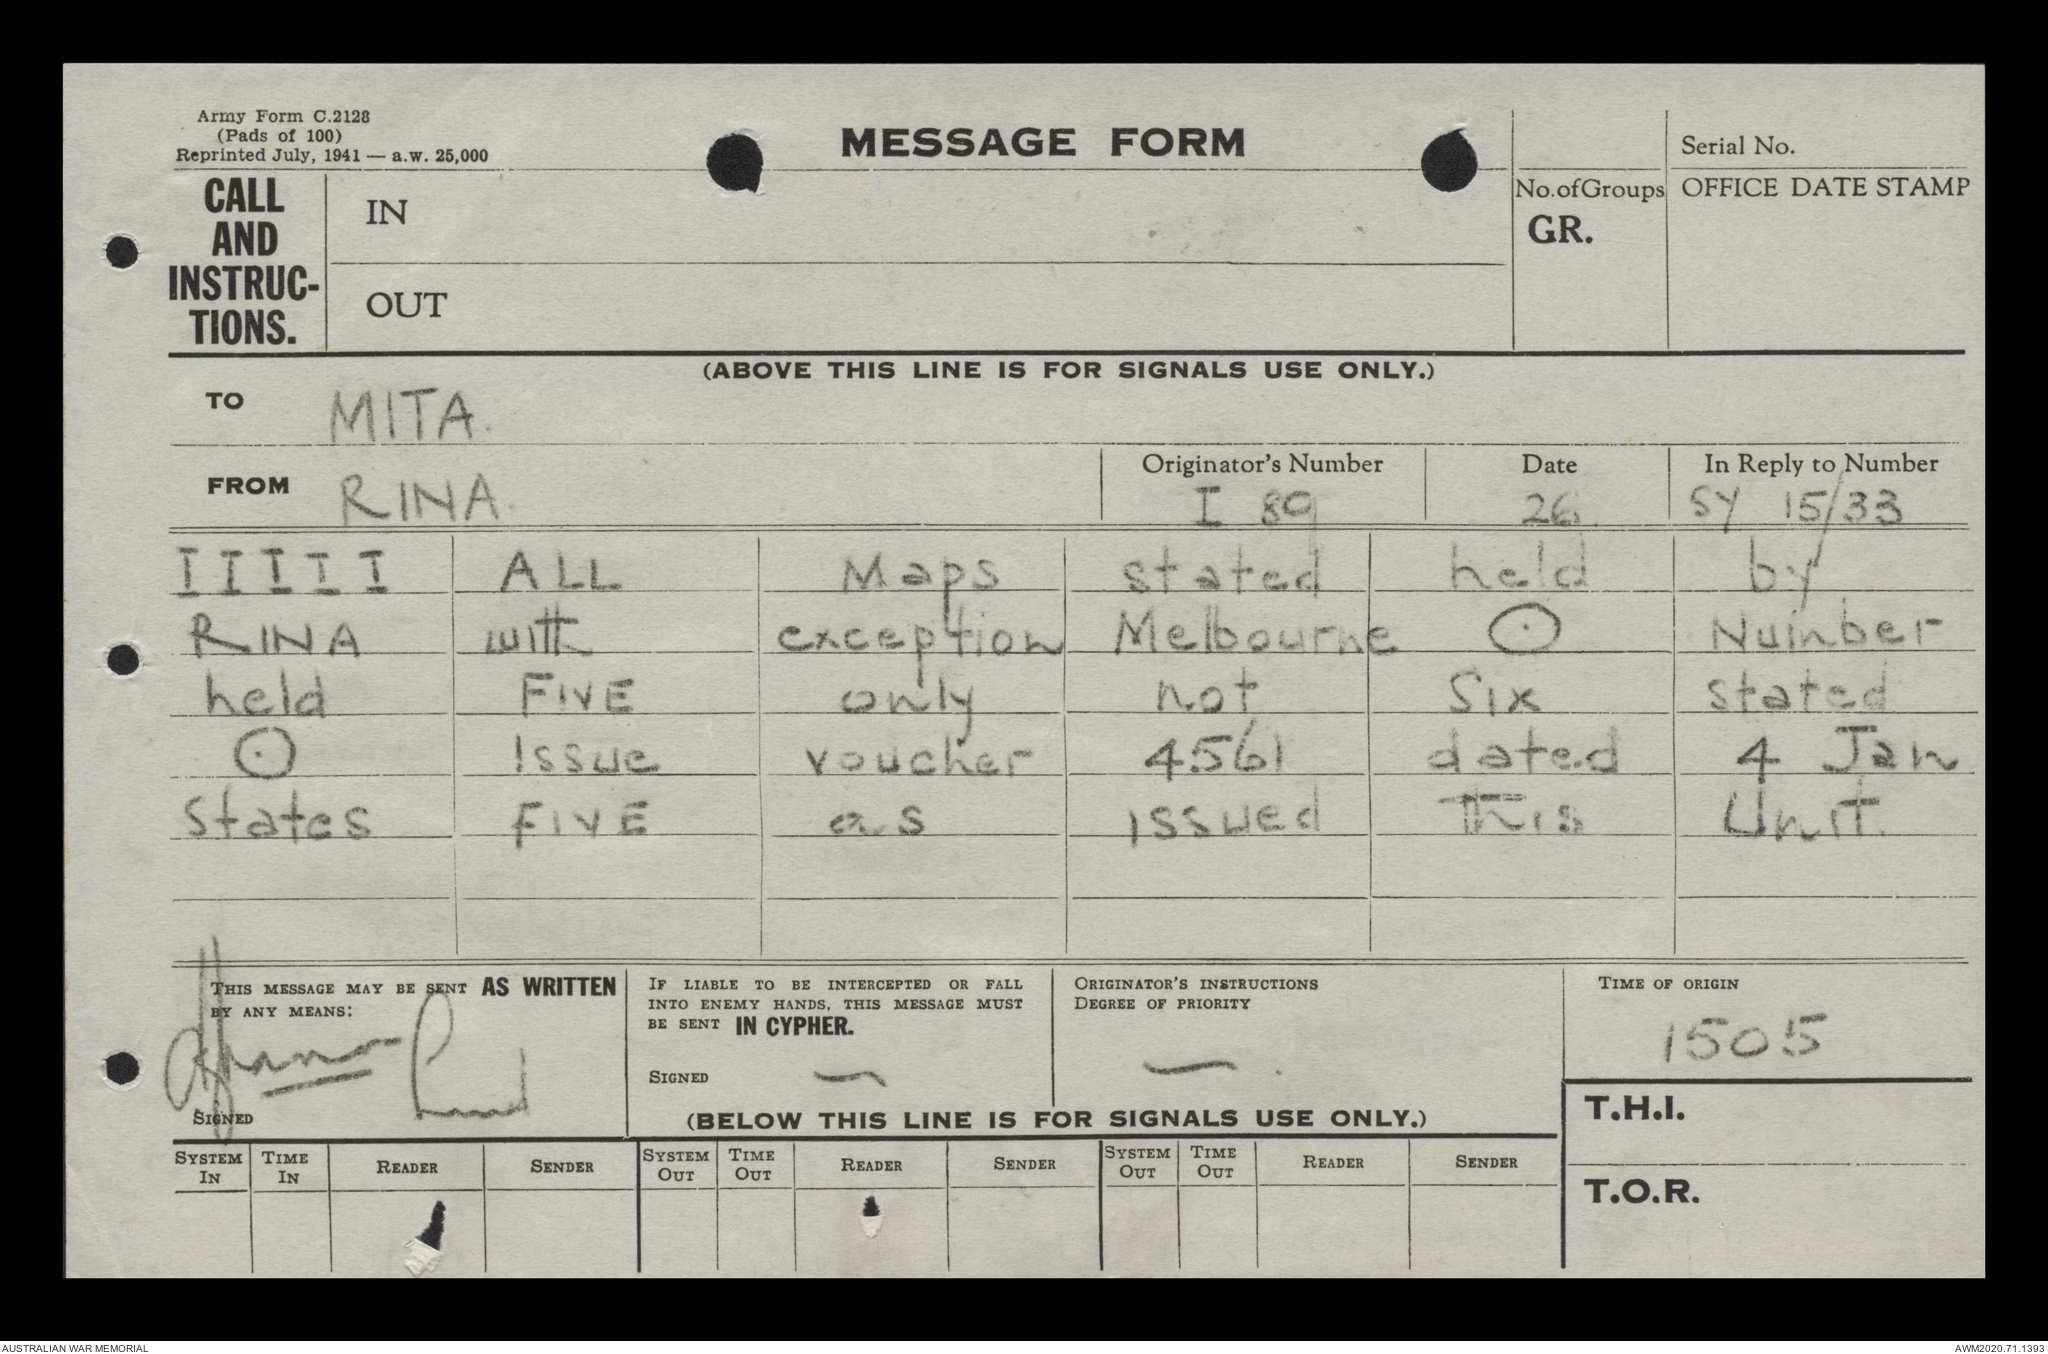 Army Form C.2128
(Pads of 100)
Reprinted July, 1941 — a.w. 25,000
MESSAGE FORM
Serial No.
CALL AND INSTRUC-TIONS.
IN
OUT
No. of Groups
GR.
OFFICE DATE STAMP
(ABOVE THIS LINE IS FOR SIGNALS USE ONLY.)
TO MITA.
FROM RINA.
Originator's Number I 89
Date 26
In Reply to Number SY 15/33
IIIII ALL Maps stated held by
RINA with exception Melbourne ⊙ Number
held FIVE only not Six stated
⊙ Issue voucher 4561 dated 4 Jan
States FIVE as issued This Unit.
THIS MESSAGE MAY BE SENT AS WRITTEN
BY ANY MEANS:
SIGNED
IF LIABLE TO BE INTERCEPTED OR FALL
INTO ENEMY HANDS, THIS MESSAGE MUST
BE SENT IN CYPHER.
SIGNED —
ORIGINATOR'S INSTRUCTIONS
DEGREE OF PRIORITY
— .
TIME OF ORIGIN
1505
(BELOW THIS LINE IS FOR SIGNALS USE ONLY.)
T.H.I.
T.O.R.
SYSTEM IN TIME IN READER SENDER SYSTEM OUT TIME OUT READER SENDER SYSTEM OUT TIME OUT READER SENDER
AUSTRALIAN WAR MEMORIAL
AWM2020.71.1393